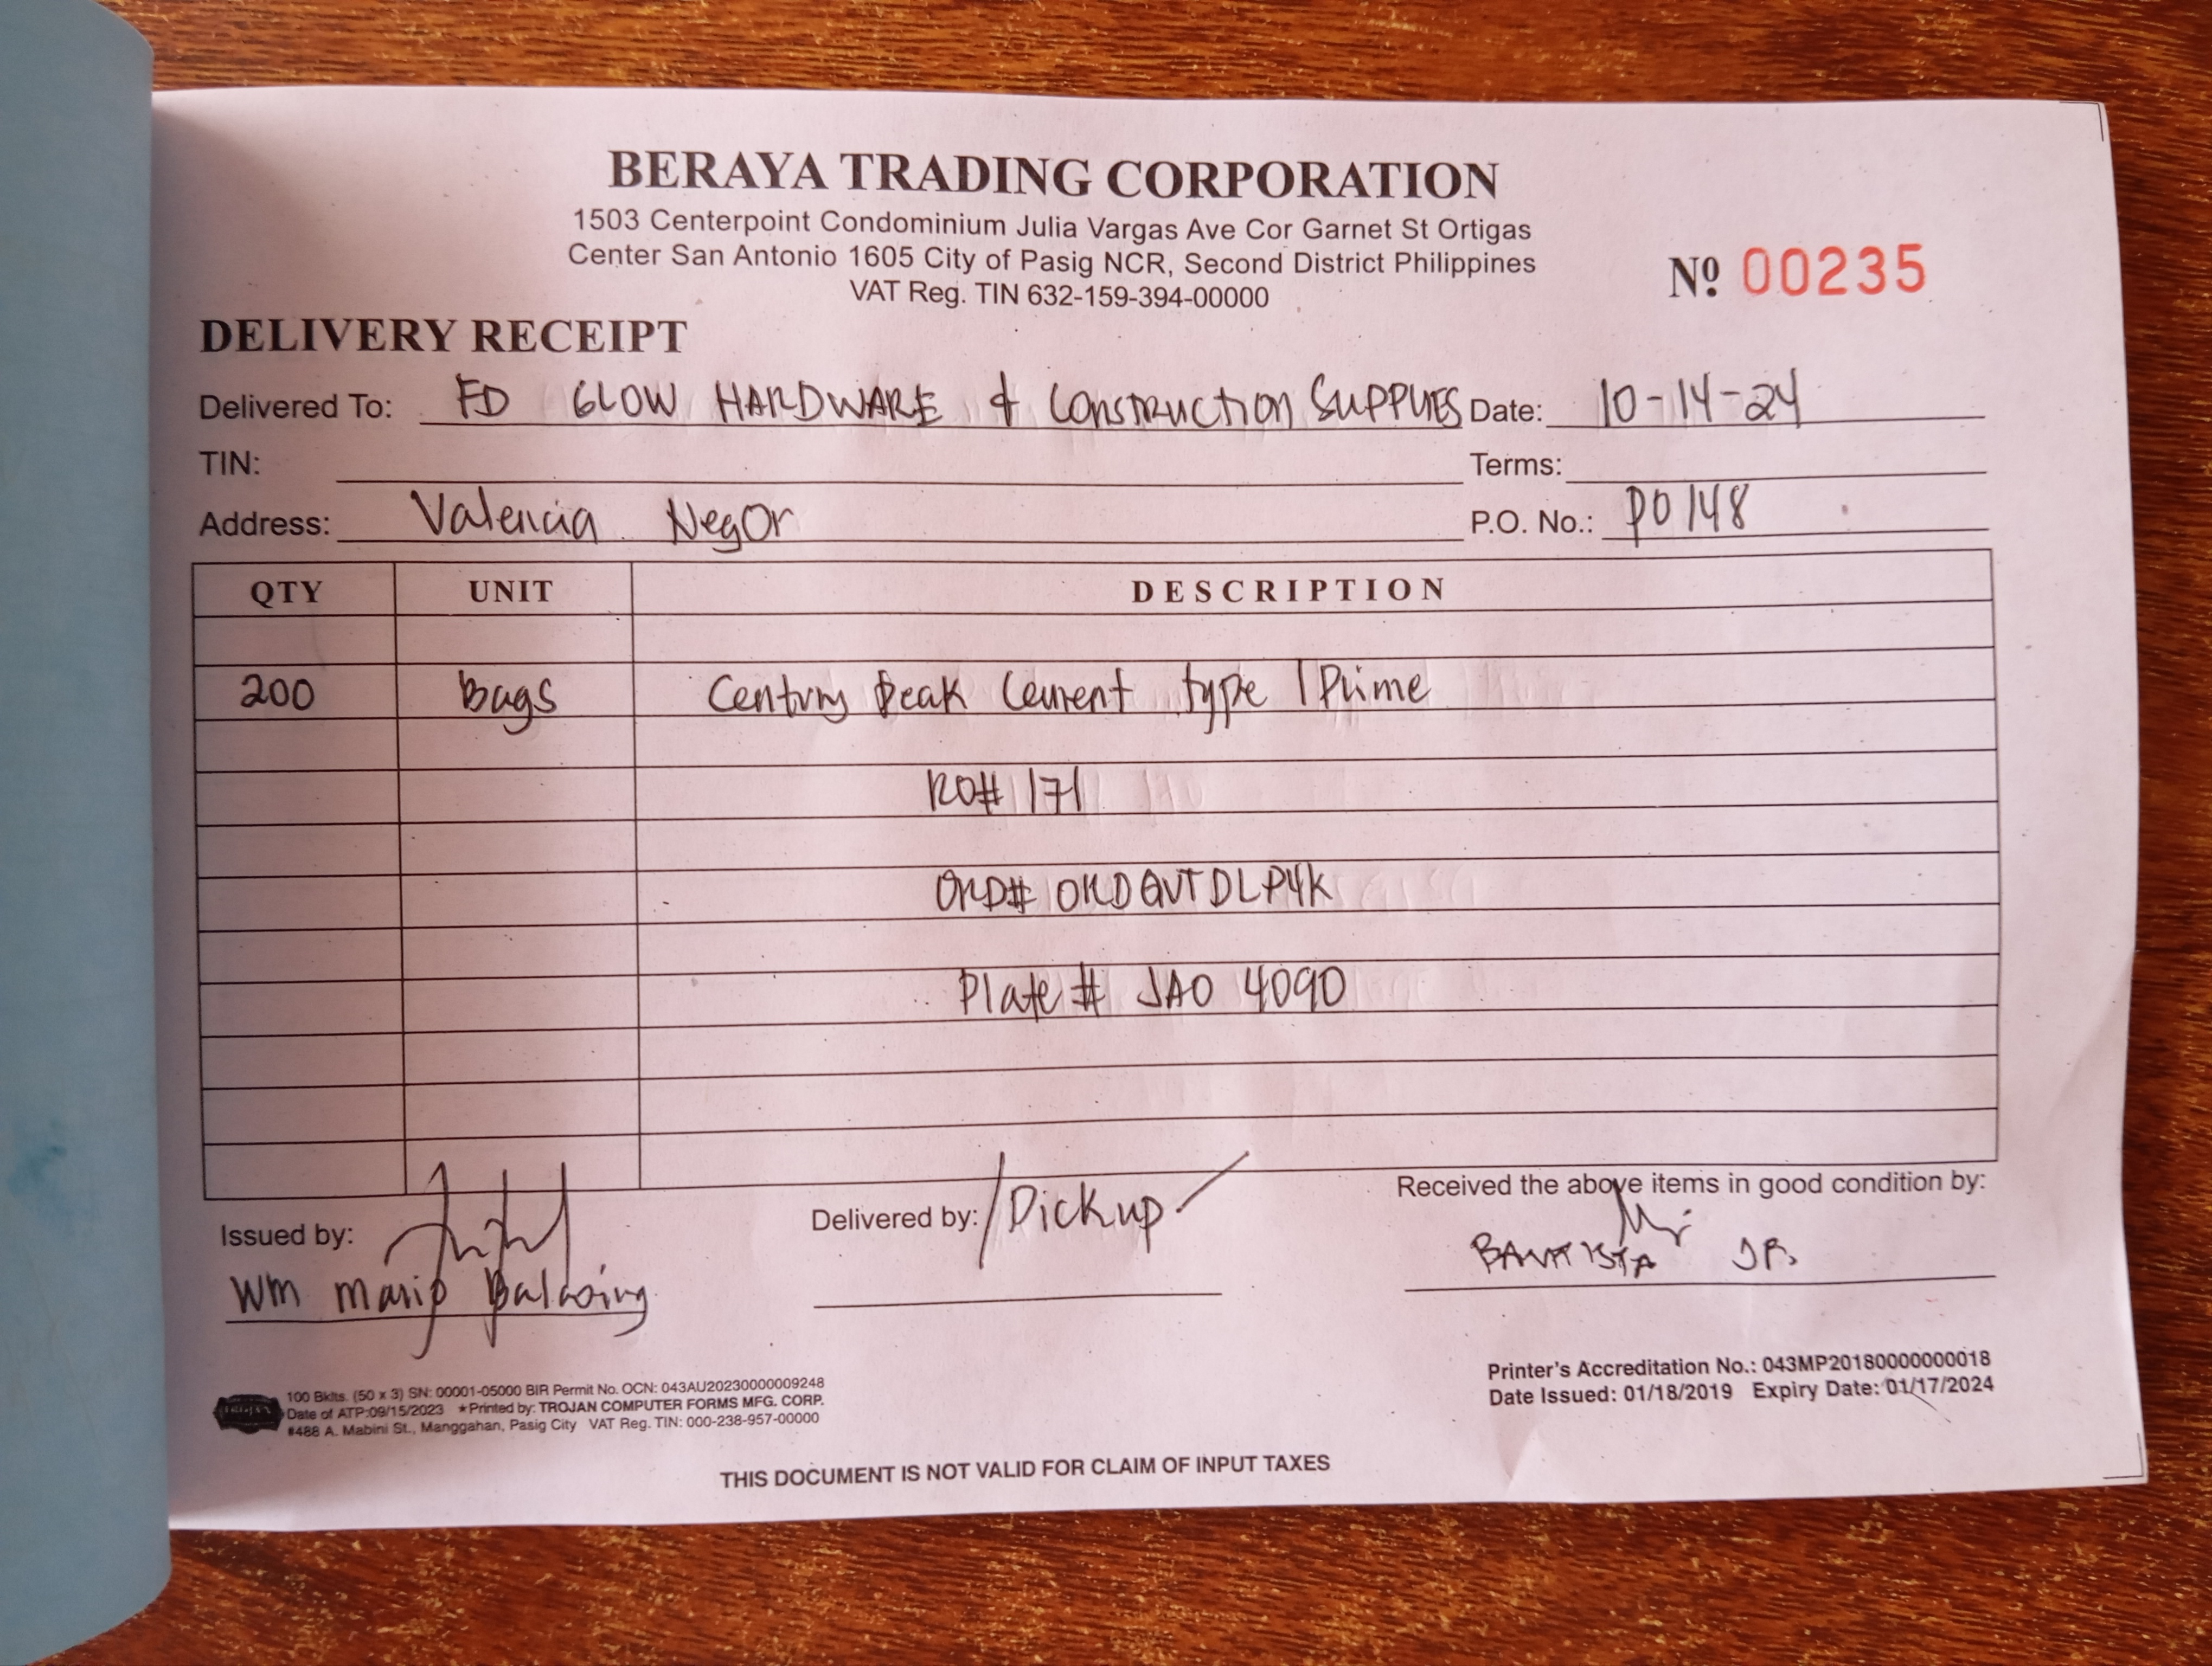 BERAYA TRADING CORPORATION
1503 Centerpoint Condominium Julia Vargas Ave Cor Garnet St Ortigas
Center San Antonio 1605 City of Pasig NCR, Second District Philippines
VAT Reg. TIN 632-159-394-00000
Nº 00235
DELIVERY RECEIPT
Delivered To: FD GLOW HARDWARE & CONSTRUCTION SUPPLIES Date: 10-14-24
TIN: Terms:
Address: Valencia NegOr P.O. No.: PO148
QTY UNIT DESCRIPTION
200 Bags Century Peak Cement type 1 Prime
RO# 171
ORD# ORDGVTDLP4K
Plate # JAO 4090
Received the above items in good condition by:
Issued by: Delivered by: /Pickup/
BAUTISTA JR.
Wm Mario
Printer's Accreditation No.: 043MP20180000000018
Date Issued: 01/18/2019 Expiry Date: 01/17/2024
100 Bklts. (50 x 3) SN: 00001-05000 BIR Permit No. OCN: 043AU20230000009248
Date of ATP:09/15/2023 ★Printed by: TROJAN COMPUTER FORMS MFG. CORP.
#488 A. Mabini St., Manggahan, Pasig City VAT Reg. TIN: 000-238-957-00000
THIS DOCUMENT IS NOT VALID FOR CLAIM OF INPUT TAXES